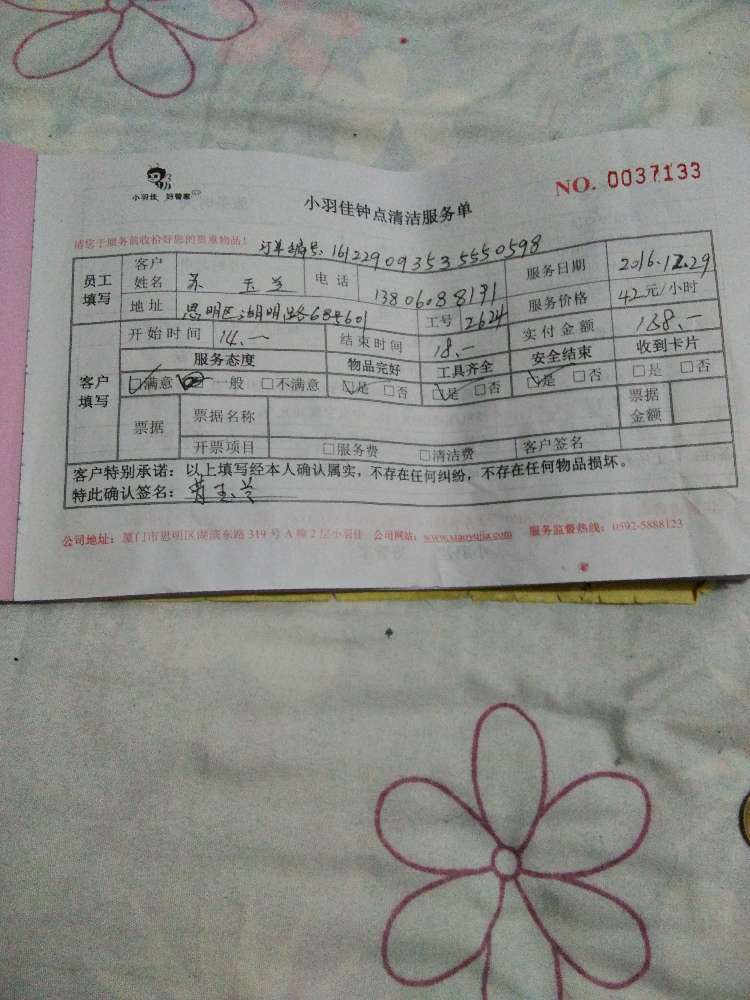 小羽佳 好管家
NO. 0037133
小羽佳钟点清洁服务单
请您于服务前收拾好您的贵重物品! 订单编号: 1612290935355550598
员工填写 客户姓名 苏玉兰 电话 13806088191 服务日期 2016.12.29
地址 思明区湖明路68号601 工号 2624 服务价格 42元/小时
客户填写 开始时间 14.— 结束时间 18.— 实付金额 168.—
服务态度 物品完好 工具齐全 安全结束 收到卡片
☑满意 一般 □不满意 ☑是 □否 ☑是 □否 ☑是 □否 □是 □否
票据 票据名称 票据金额
开票项目 □服务费 □清洁费 客户签名
客户特别承诺: 以上填写经本人确认属实,不存在任何纠纷,不存在任何物品损坏。
特此确认签名:
公司地址: 厦门市思明区湖滨东路 319 号 A 幢 2 层小羽佳 公司网站: www.xiaoyujia.com 服务监督热线: 0592-5888123